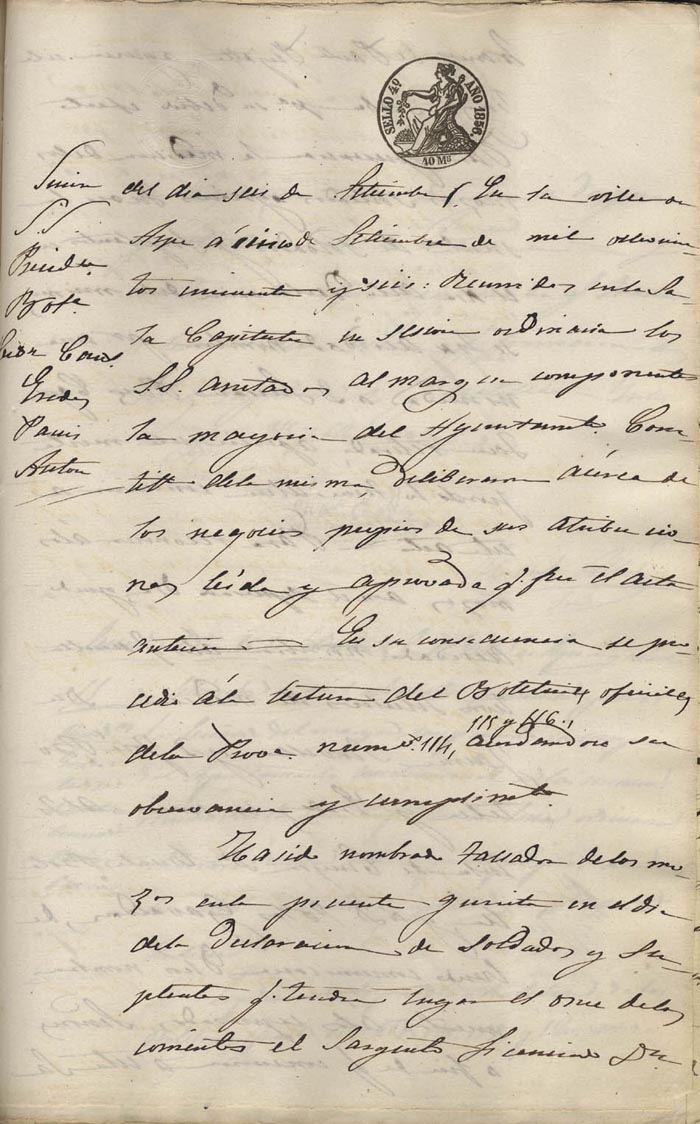 SELLO 4º AÑO 1856.
40 Ms
Sesion del dia seis de Setiembre. En la villa de
Aspe á cinco de Setiembre de mil ochocien
tos cincuenta y seis: Reunidos en la Sa
la Capitular en sesion ordinaria los
S.S. anotados al margen componentes
la mayoria del Ayuntamto. Cons
titl. de la misma, deliberaron ácerca de
los negocios propios de sus atribucio
nes leida y aprovada q. fue el acta
anterior — En su consecuencia se pro-
cedio á la lectura del Boletines oficiales
de la Prova. numos. 114, 115 y 116., acordandose su
observancia y cumplimto.
Ha sido nombrado Tallador de los mo-
zos en la presente quinta en el dia
de la Declaracion de Soldados y Su-
plentes q. tendra lugar el once de los
corrientes el Sargento licenciado Dn.
S.S.
Presidte.
Botª.
Cons.
Gredes
Pavis
Anton